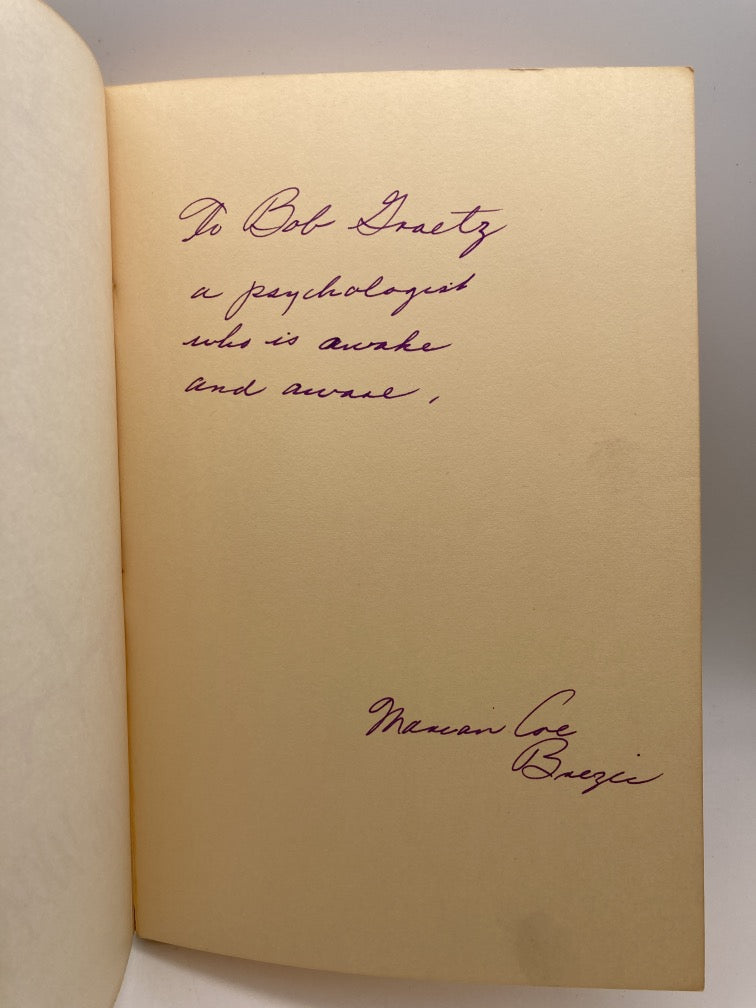 To Bob Graetz
a psychologist
who is awake
and aware,
Marian Coe
Brezic